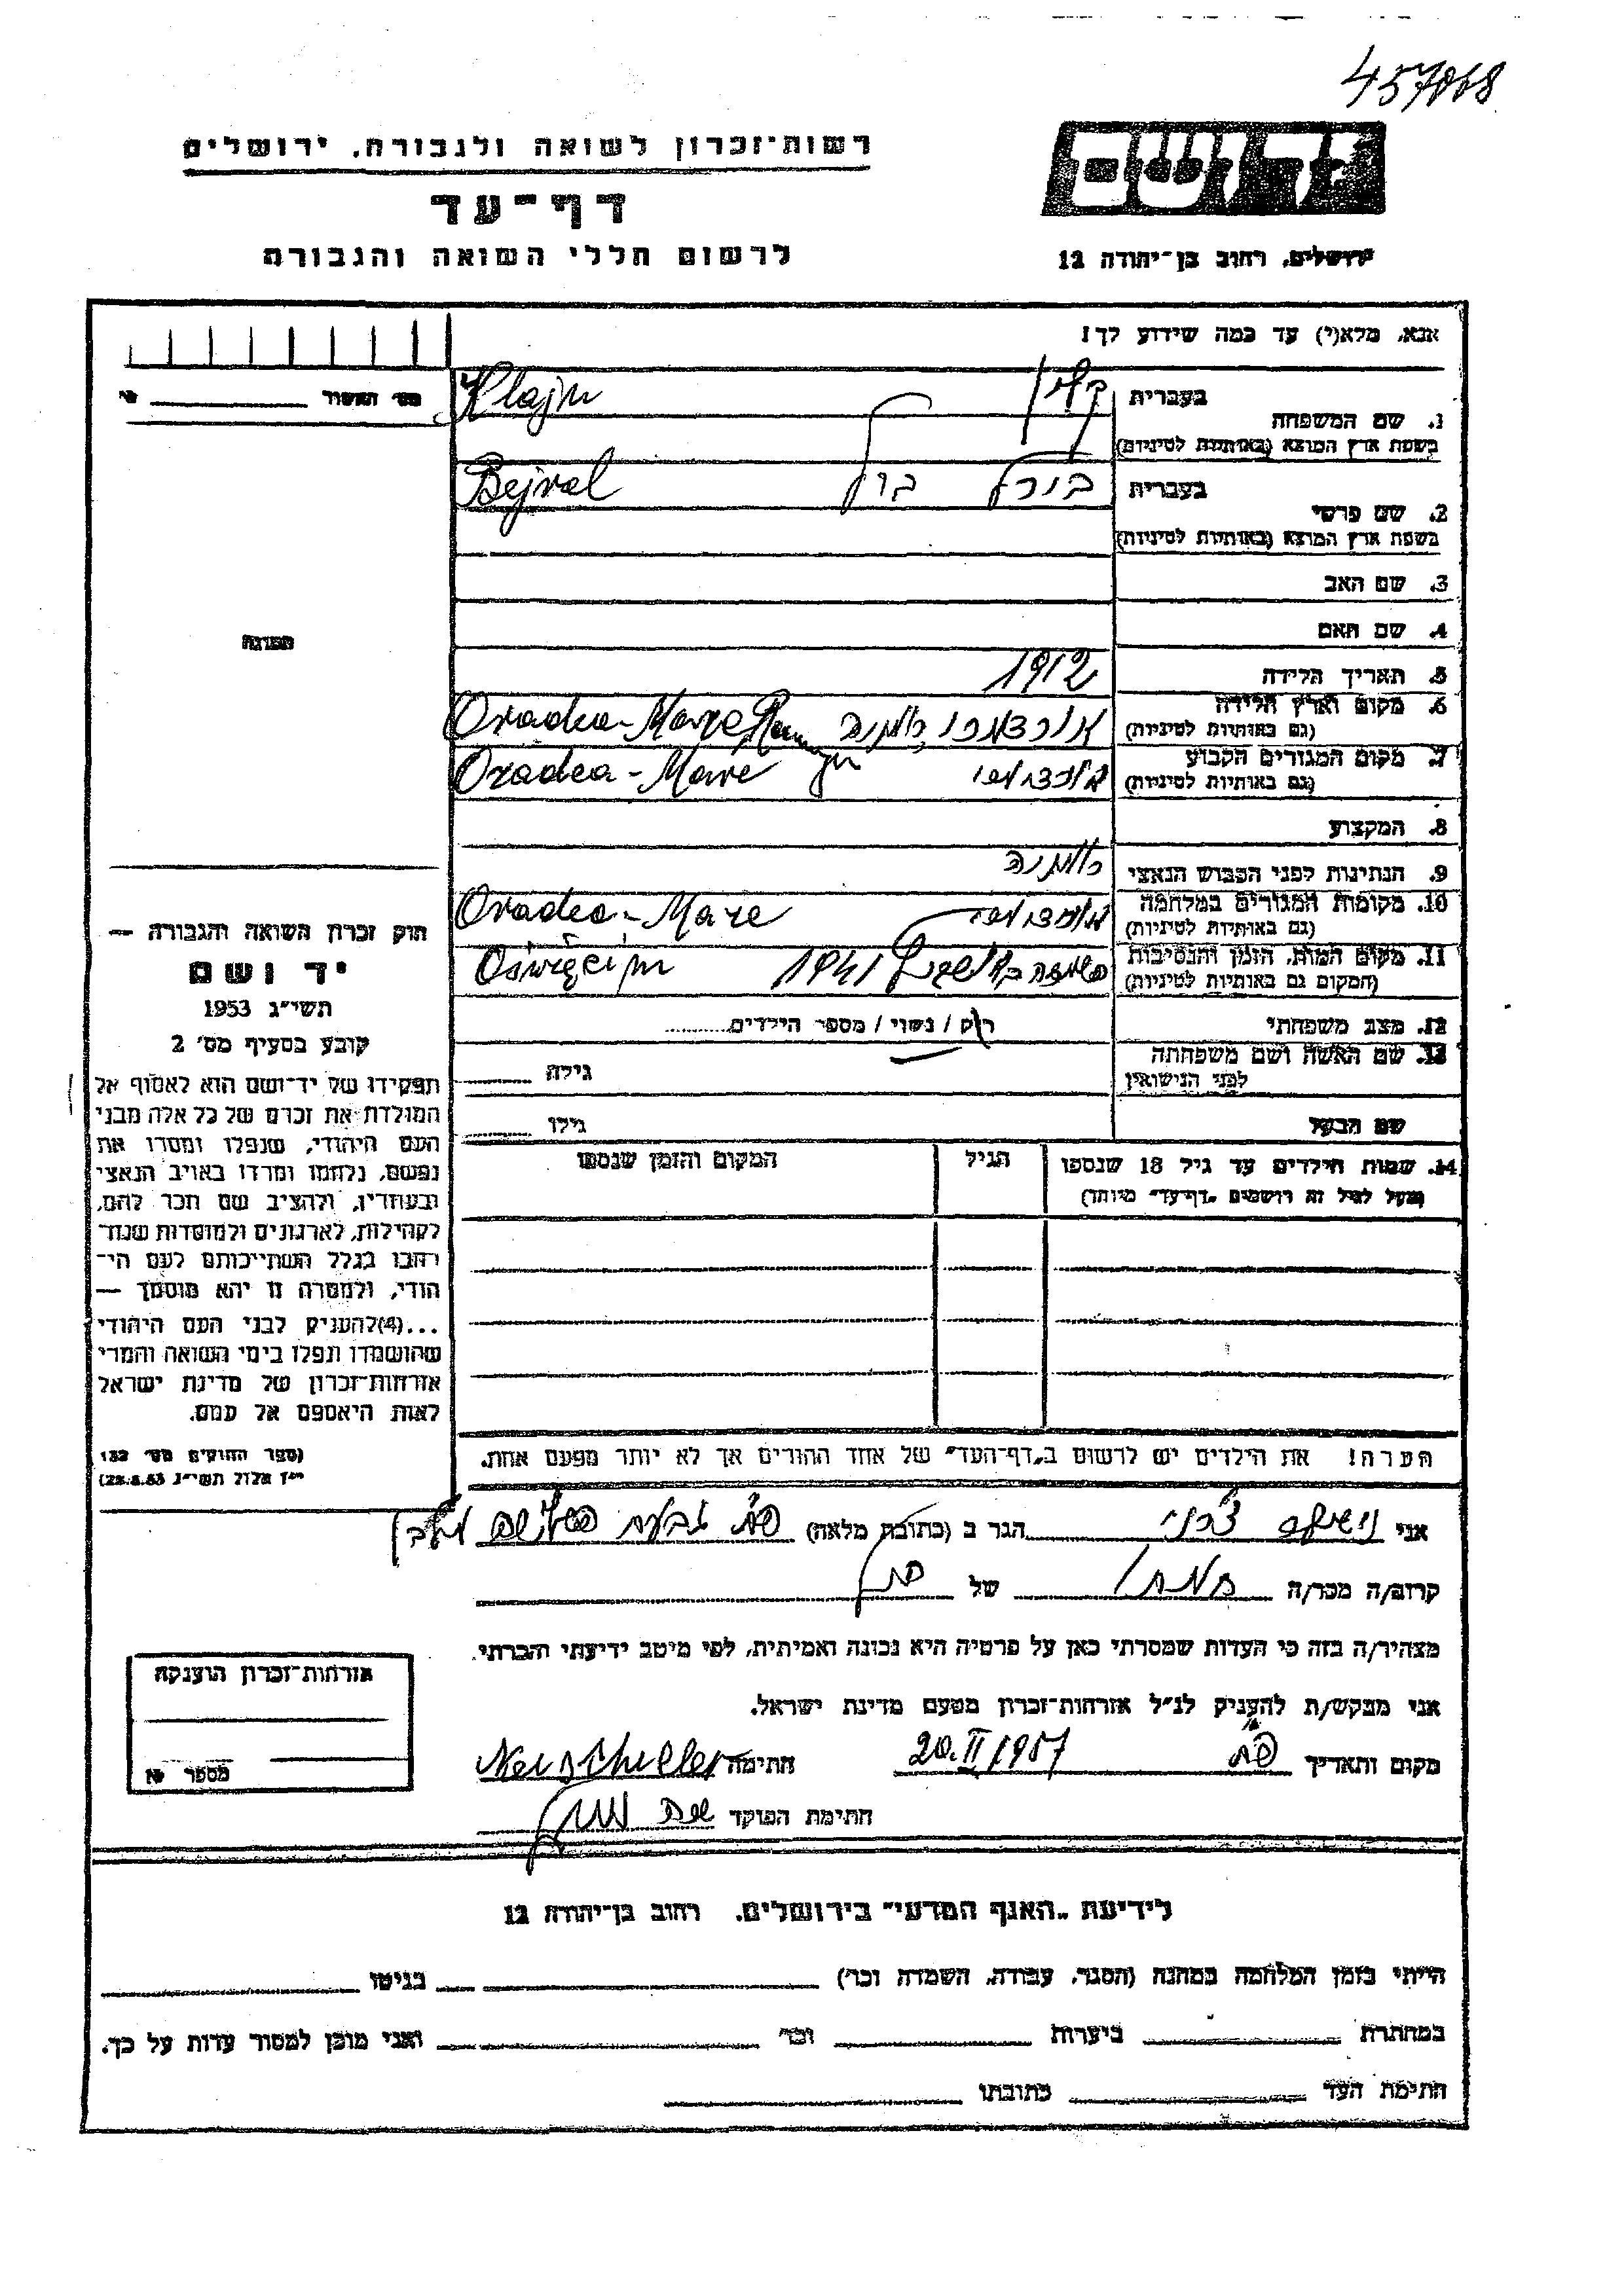 רשות־זכרון לשואה ולגבורה, ירושלים
דף־עד
לרשום חללי השואה והגבורה
ירושלים, רחוב בן־יהודה 12
אנא, מלא(י) עד כמה שידוע לך!
1. שם המשפחה
בעברית קליין
בשפת ארץ המוצא (באותיות לטיניות) Klajn
2. שם פרטי
בעברית
בשפת ארץ המוצא (באותיות לטיניות) Bejral
3. שם האב
4. שם האם
5. תאריך הלידה 1912
6. מקום וארץ הלידה
(גם באותיות לטיניות) Oradea-Mare
7. מקום המגורים הקבוע
(גם באותיות לטיניות) Oradea-Mare
8. המקצוע
9. הנתינות לפני הכבוש הנאצי רומניה
10. מקומות המגורים במלחמה
(גם באותיות לטיניות) Oradea-Mare
11. מקום המות, הזמן והנסיבות
(המקום גם באותיות לטיניות) Oświęcim
12. מצב משפחתי רוק / נשוי / מספר הילדים
13. שם האשה ושם משפחתה
לפני הנישואין גילה
שם הבעל גילו
14. שמות הילדים עד גיל 18 שנספו הגיל המקום והזמן שנספו
(מעל לגיל זה רושמים „דף־עד" מיוחד)
הערה! את הילדים יש לרשום ב„דף־העד" של אחד ההורים אך לא יותר מפעם אחת.
מס' האשור
תמונה
חוק זכרון השואה והגבורה —
יד ושם
תשי"ג 1953
קובע בסעיף מס' 2
תפקידו של יד־ושם הוא לאסוף אל
המולדת את זכרם של כל אלה מבני
העם היהודי, שנפלו ומסרו את
נפשם, נלחמו ומרדו באויב הנאצי
ובעוזריו, ולהציב שם וזכר להם,
לקהילות, לארגונים ולמוסדות שנח־
רבו בגלל השתייכותם לעם הי־
הודי, ולמטרה זו יהא מוסמך —
...(4) להעניק לבני העם היהודי
שהושמדו ונפלו בימי השואה והמרי
אזרחות־זכרון של מדינת ישראל
לאות היאספם אל עמם.
(ספר החוקים מס' 132
י"ז אלול תשי"ג 28.8.53)
אני הגר ב (כתובת מלאה)
קרוב/ה מכר/ה של
מצהיר/ה בזה כי העדות שמסרתי כאן על פרטיה היא נכונה ואמיתית, לפי מיטב ידיעתי והכרתי.
אני מבקש/ת להעניק לנ"ל אזרחות־זכרון מטעם מדינת ישראל.
מקום ותאריך 20.II 1957 חתימה
חתימת הפוקד
אזרחות־זכרון הוענקה
מספר
לידיעת „האגף המדעי" בירושלים, רחוב בן־יהודה 12
הייתי בזמן המלחמה במחנה (הסגר, עבודה, השמדה וכו') בגיטו
במחתרת ביערות וכו' ואני מוכן למסור עדות על כך.
חתימת העד כתובתו